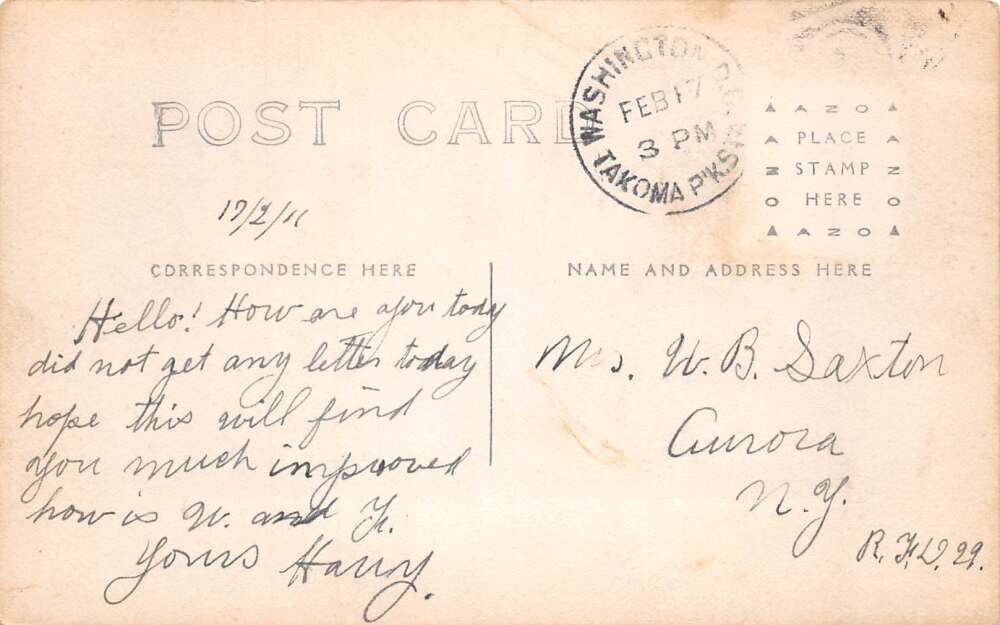 POST CARD
WASHINGTON D.C.
FEB 17
3 PM
TAKOMA P'K. S
AZO
PLACE
STAMP
HERE
AZO
17/2/11
CORRESPONDENCE HERE
NAME AND ADDRESS HERE
Hello! How are you today
did not get any letter today
hope this will find
you much improved
how is W. and F.
Yours Harry.
Mrs. W. B. Saxton
Aurora
N.Y.
R.F.D. 29.